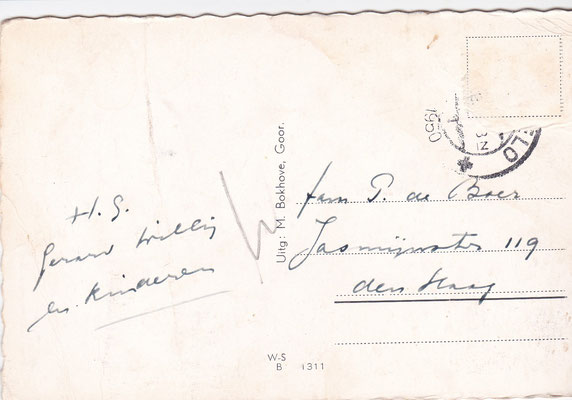 H. G.
Gerard Willy
en Kinderen
Uitg: M. Bokhove, Goor.
1950
LO
fam P. de Boer
Jasmijnstr 119
den Haag
W-S
B 1311